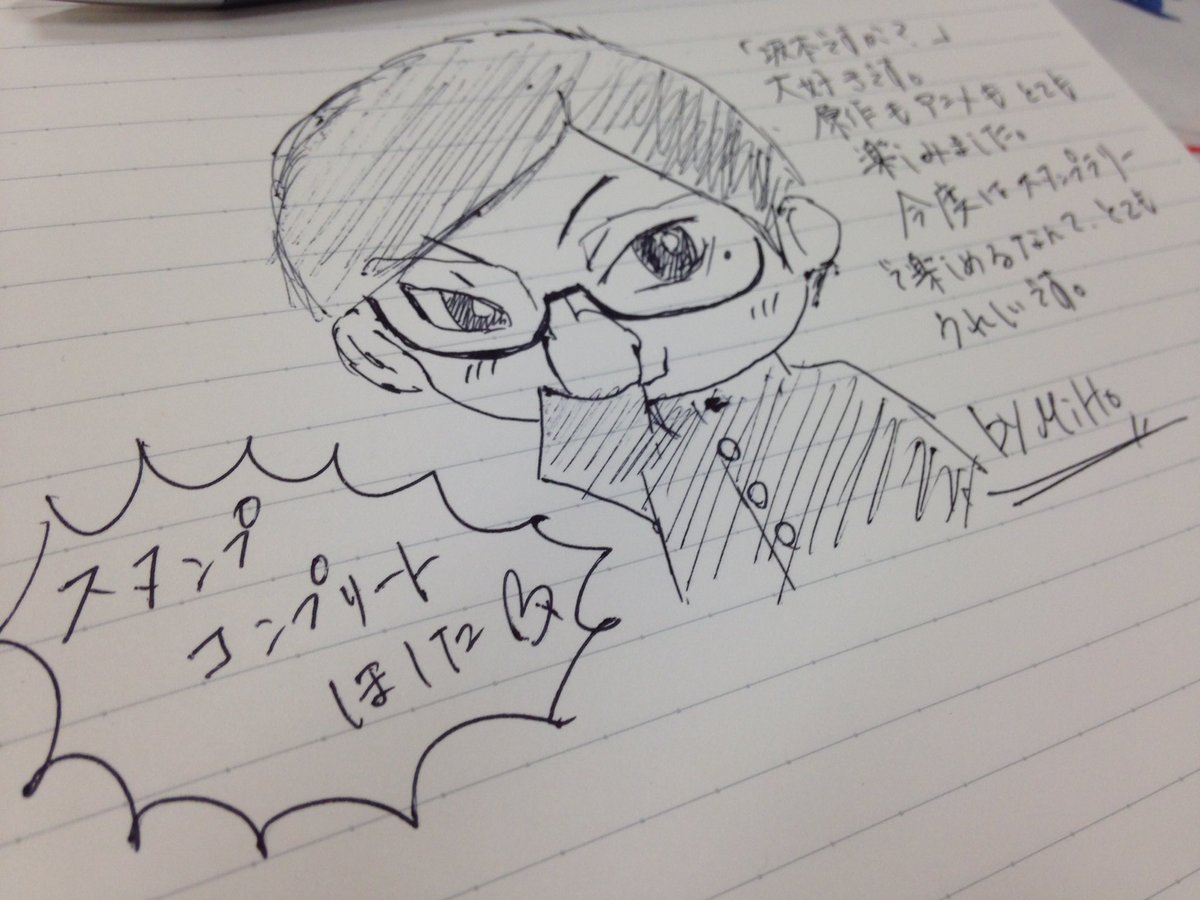 「坂本ですが？」
大好きです。
原作もアニメもとても
楽しみました。
今度はスタンプラリー
で楽しめるなんて、とても
うれしいです。
by MiHo
スタンプ
コンプリート
ほした